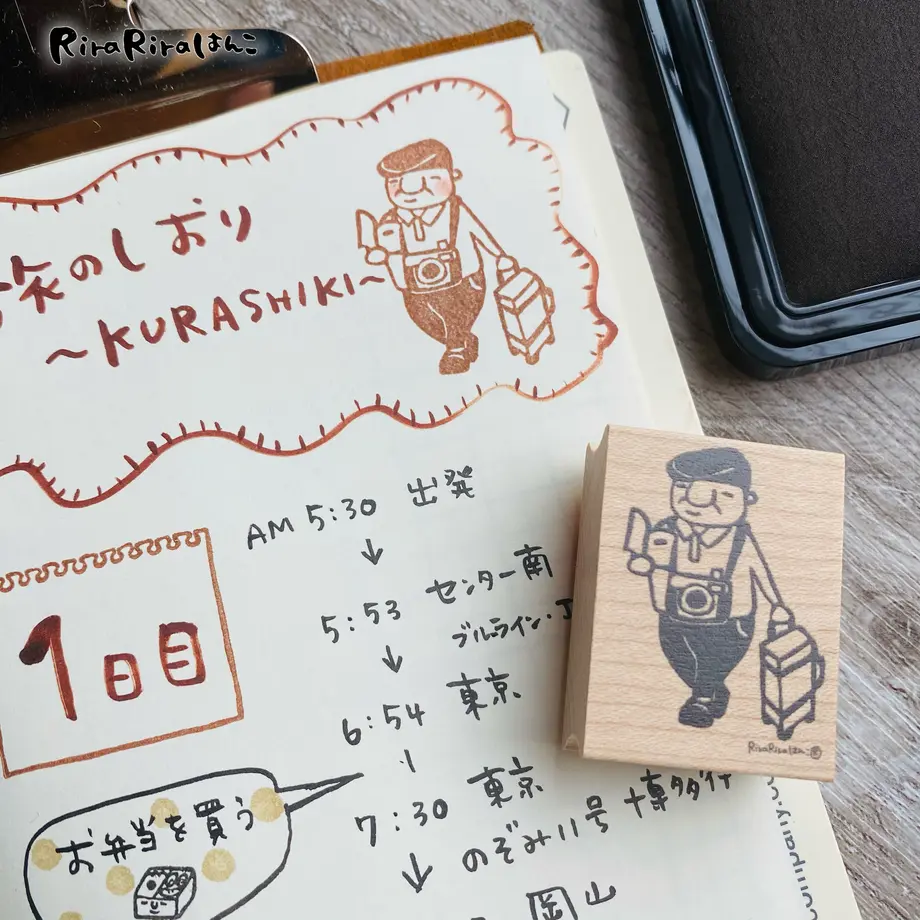 RiraRiraはんこ
旅のしおり
~KURASHIKI~
AM 5:30 出発
5:53 センター南
ブルーライン・J
6:54 東京
7:30 東京
のぞみ11号 博多行
岡山
1日目
お弁当を買う
RiraRiraはんこ